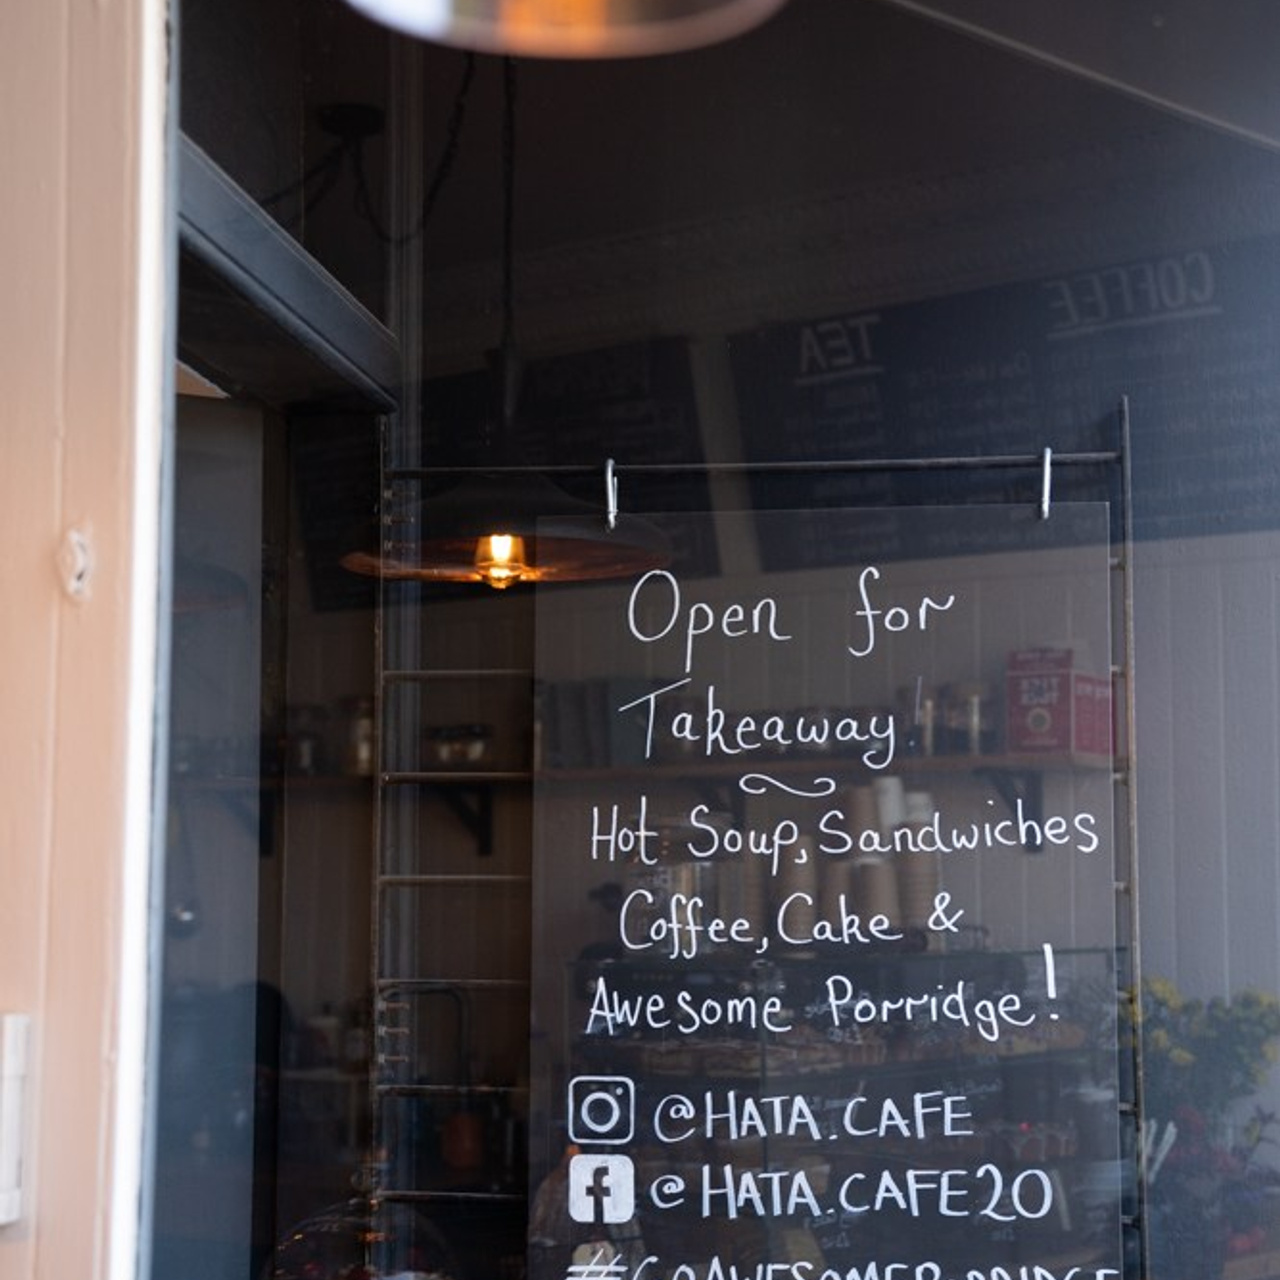 COFFEE
TEA
Open for
Takeaway!
Hot Soup, Sandwiches
Coffee, Cake &
Awesome Porridge!
@HATA.CAFE
@HATA.CAFE20